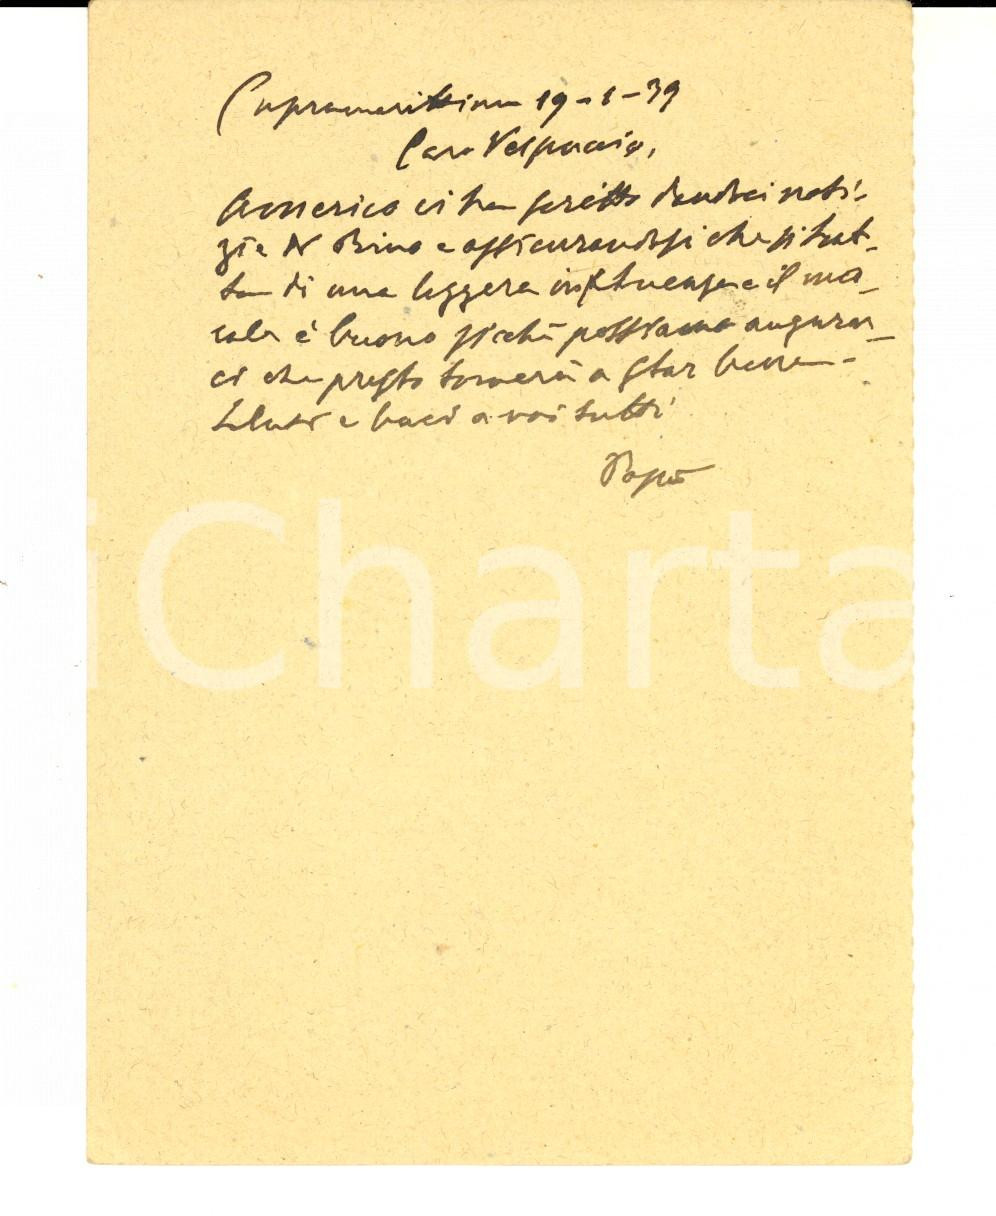 Cupramarittima 19-1-39
Caro Vespuccio,
Americo ci ha scritto dandoci noti-
zie di Brino e assicurandosi che si trat-
ta di una leggera influenza e il mo
rale è buono sicchè possiamo augurar_
ci che presto tornerà a star bene -
Saluti e baci a voi tutti
Papà
iCharta